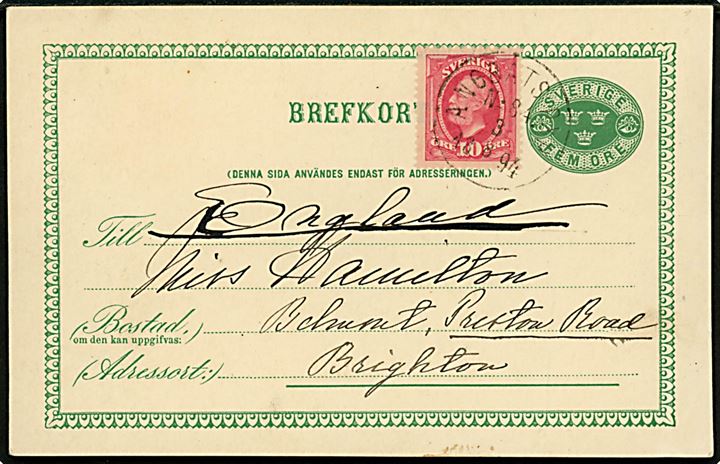 BREFKOR
SVERIGE
ÖRE 10 ÖRE
ÅNGBÅTS
N 84
94
SVERIGE
FEM ÖRE
(DENNA SIDA ANVÄNDES ENDAST FÖR ADRESSERINGEN.)
Till England
Miss Hamilton
(Bostad, Belmont, Preston Road
om den kan uppgifvas:)
(Adressort:) Brighton